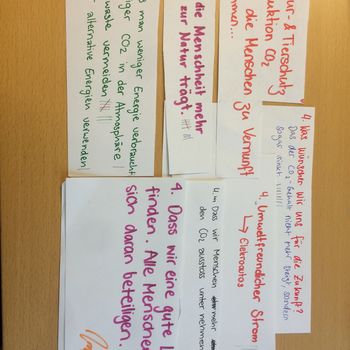 man weniger Energie verbraucht
CO2 in der Atmosphäre
waste vermeiden
alternative Energien verwenden
die Menschheit mehr
zur Natur trägt.
& Tierschutz
CO2
die Menschen zu Vernunft
4. Was wünschen wir uns für die Zukunft?
Das der CO2-Gehalt nicht mehr steigt, sondern
sogar sinkt.
4. Umweltfreundlicher Strom
↳ Elektroautos
4. Dass wir Menschen mehr
den CO2 ausstoss unternehmen
4. Dass wir eine gute
finden. Alle Menschen
sich daran beteiligen.